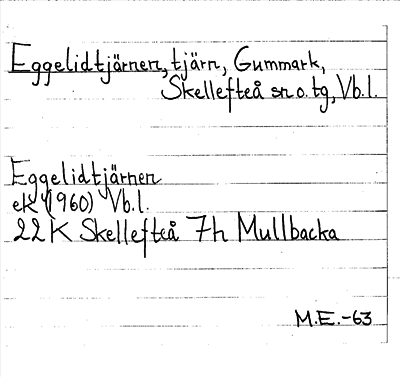 Eggelidtjärnen, tjärn, Gummark,
Skellefteå sn. o. tg, Vb. l.
Eggelidtjärnen
ek (1960) Vb. l.
22 K Skellefteå 7h Mullbacka
M.E.-63